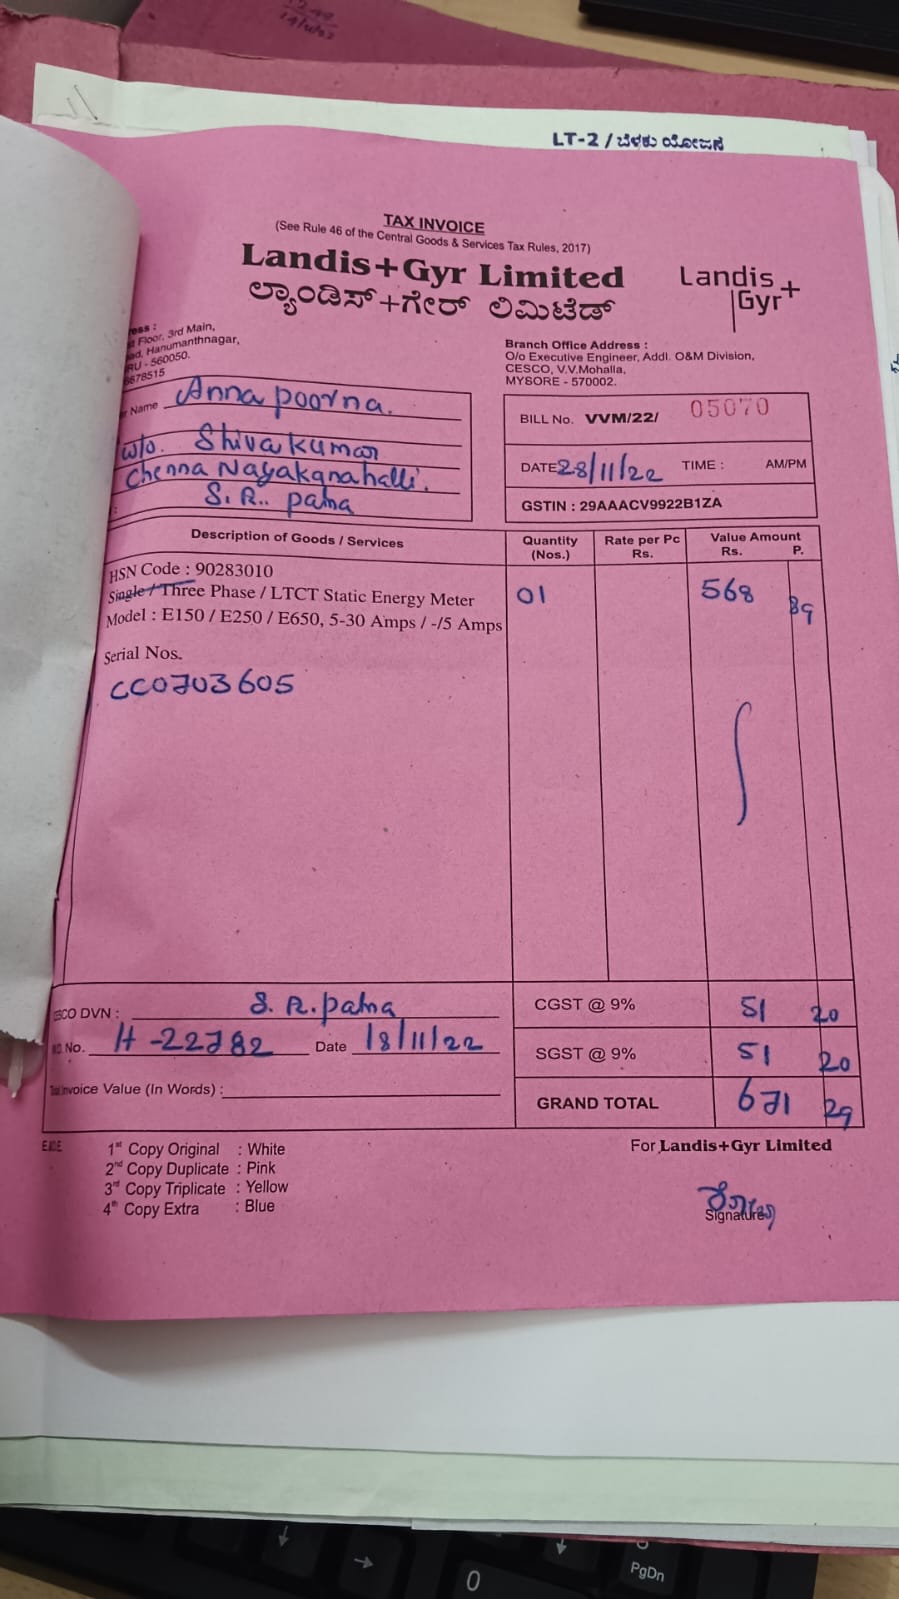 LT-2 / ಬೆಳಕು ಯೋಜನೆ
TAX INVOICE
(See Rule 46 of the Central Goods & Services Tax Rules, 2017)
Landis+Gyr Limited
ಲ್ಯಾಂಡಿಸ್+ಗೇರ್ ಲಿಮಿಟೆಡ್
Landis
Gyr+
Floor, 3rd Main,
Hanumanthnagar,
- 560050.
Branch Office Address :
O/o Executive Engineer, Addl. O&M Division,
CESCO, V.V.Mohalla,
MYSORE - 570002.
Name Annapoorna.
w/o. Shivakumar
Chenna Nayakanahalli.
S.R.. patna
BILL No. VVM/22/ 05070
DATE 28/11/22 TIME : AM/PM
GSTIN : 29AAACV9922B1ZA
Description of Goods / Services Quantity (Nos.) Rate per Pc Rs. Value Amount Rs. P.
HSN Code : 90283010
Single / Three Phase / LTCT Static Energy Meter 01 568 89
Model : E150 / E250 / E650, 5-30 Amps / -/5 Amps
Serial Nos.
CC0703605
DVN : S.R.patna
No. H-22782 Date 18/11/22
Invoice Value (In Words) :
CGST @ 9% 51 20
SGST @ 9% 51 20
GRAND TOTAL 671 29
E&OE
1st Copy Original : White
2nd Copy Duplicate : Pink
3rd Copy Triplicate : Yellow
4th Copy Extra : Blue
For Landis+Gyr Limited
Signature
0
PgDn